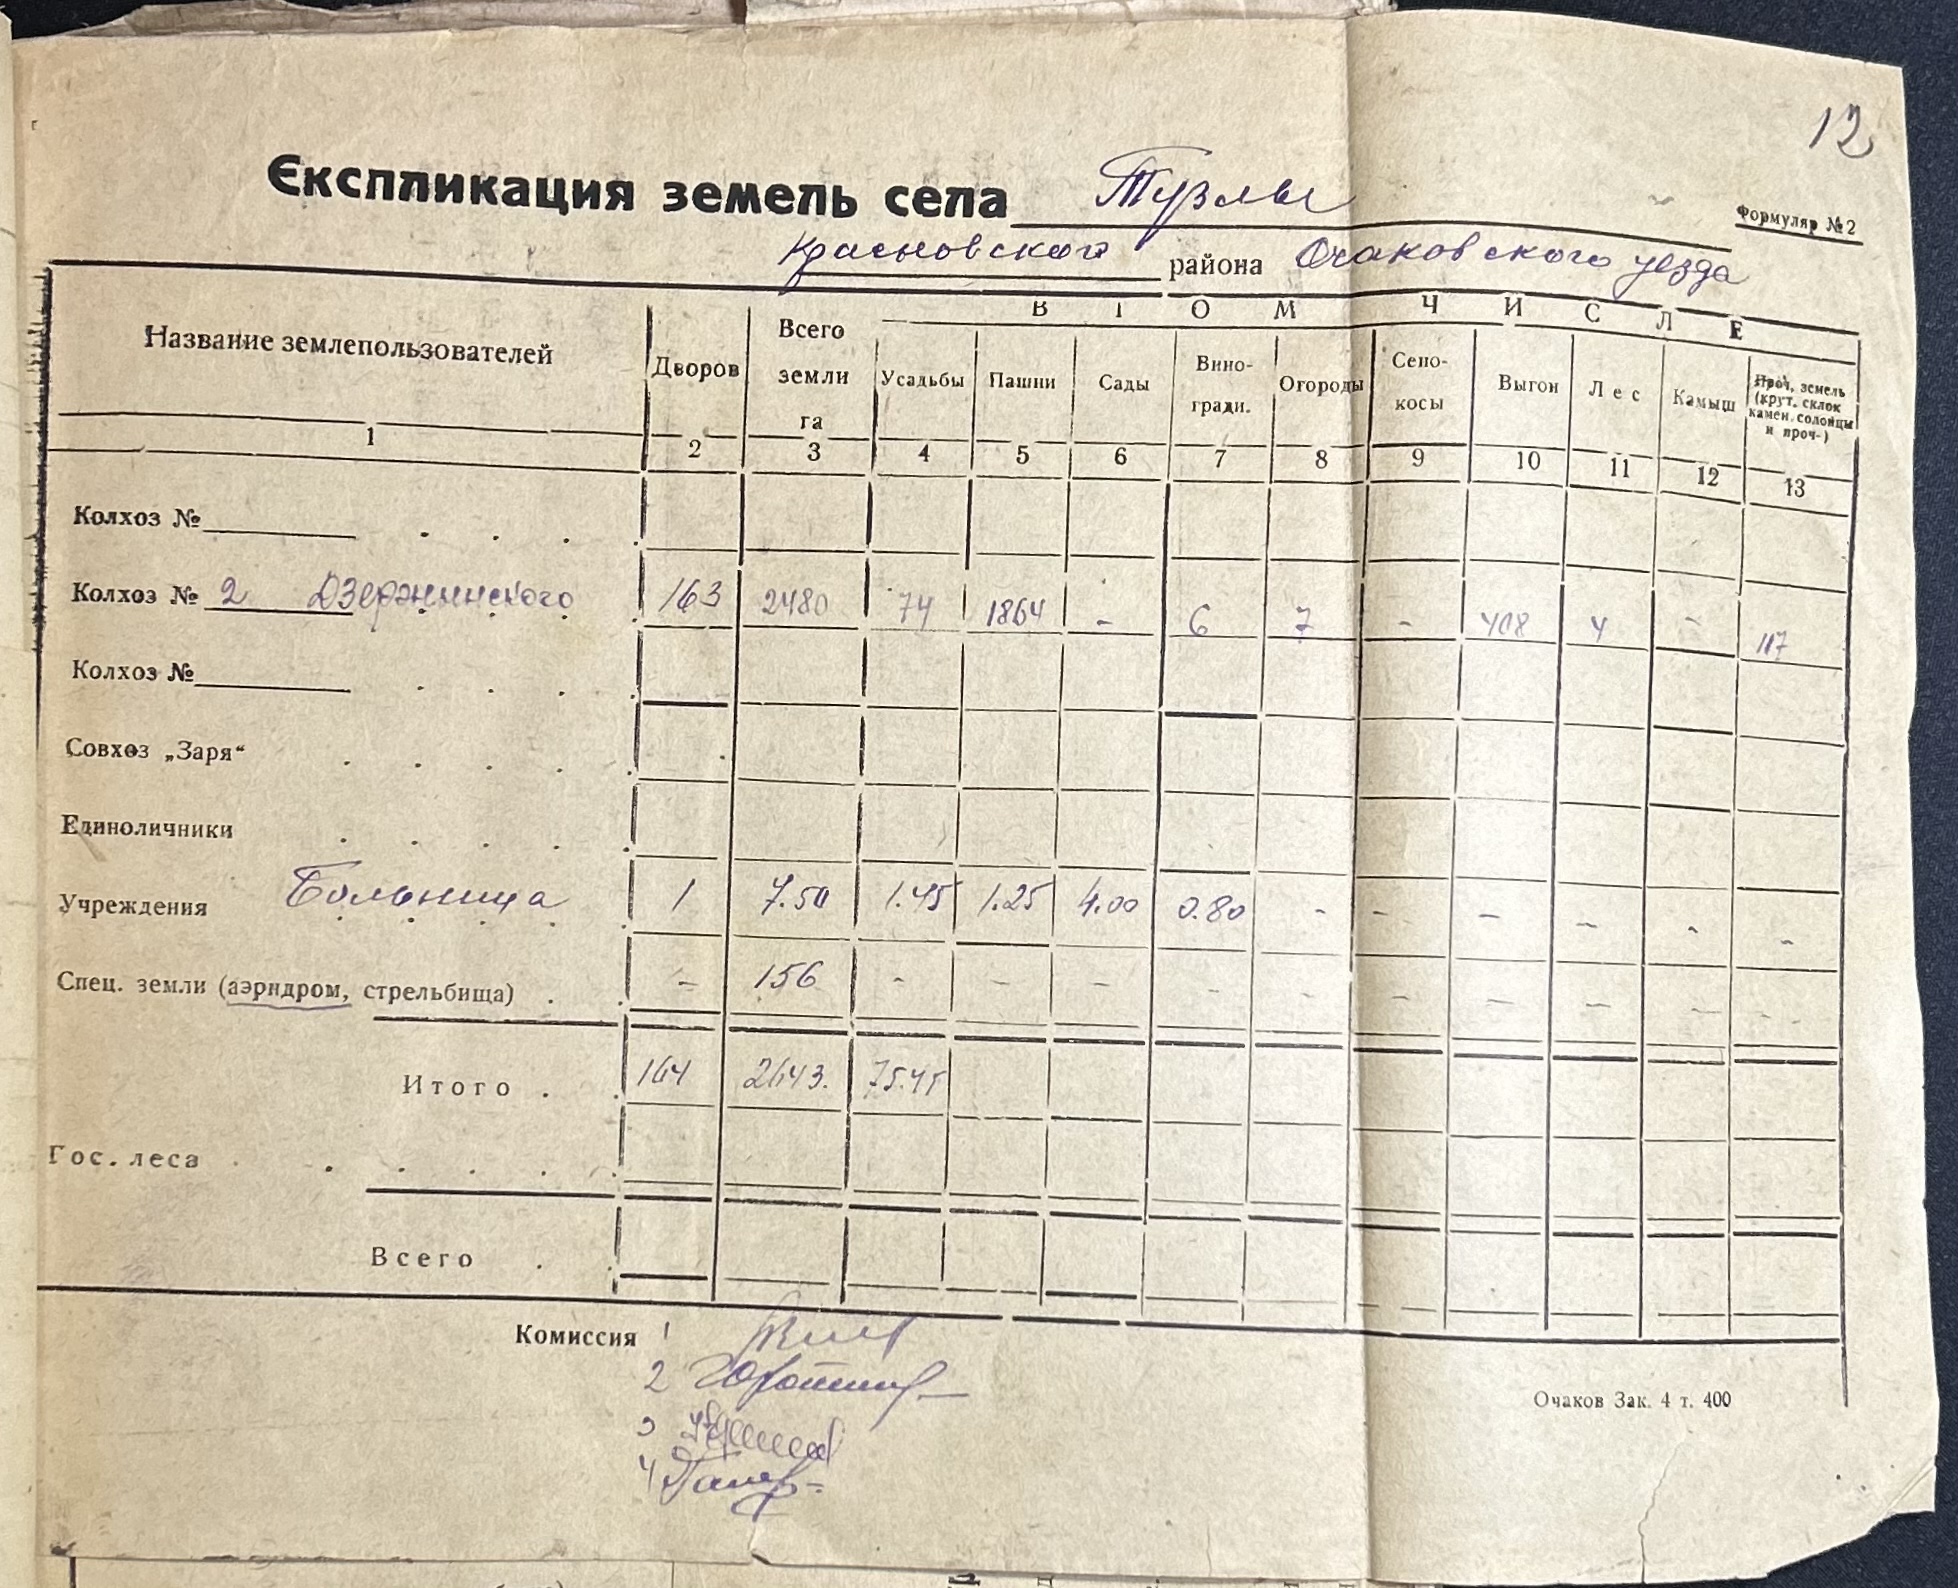 12
Експликация земель села Тузлы
Формуляр № 2
Красновского района Очаковского уезда
В ТОМ ЧИСЛЕ
Название землепользователей Дворов Всего земли га Усадьбы Пашни Сады Вино-гради. Огороды Сено-косы Выгон Лес Камыш Проч, земель (крут. склок камен. солойцы и проч-)
1 2 3 4 5 6 7 8 9 10 11 12 13
Колхоз №
Колхоз № 2 Дзержинского 163 2480 74 1864 - 6 7 - 408 4 - 117
Колхоз №
Совхоз „Заря“
Единоличники
Учреждения Больница 1 7.50 1.45 1.25 4.00 0.80 - - - - - -
Спец. земли (аэрндром, стрельбища) - 156 - - - - - - - - - -
Итого 164 2643. 75.45
Гос. леса
Всего
Комиссия 1
2
3
4
Очаков Зак. 4 т. 400